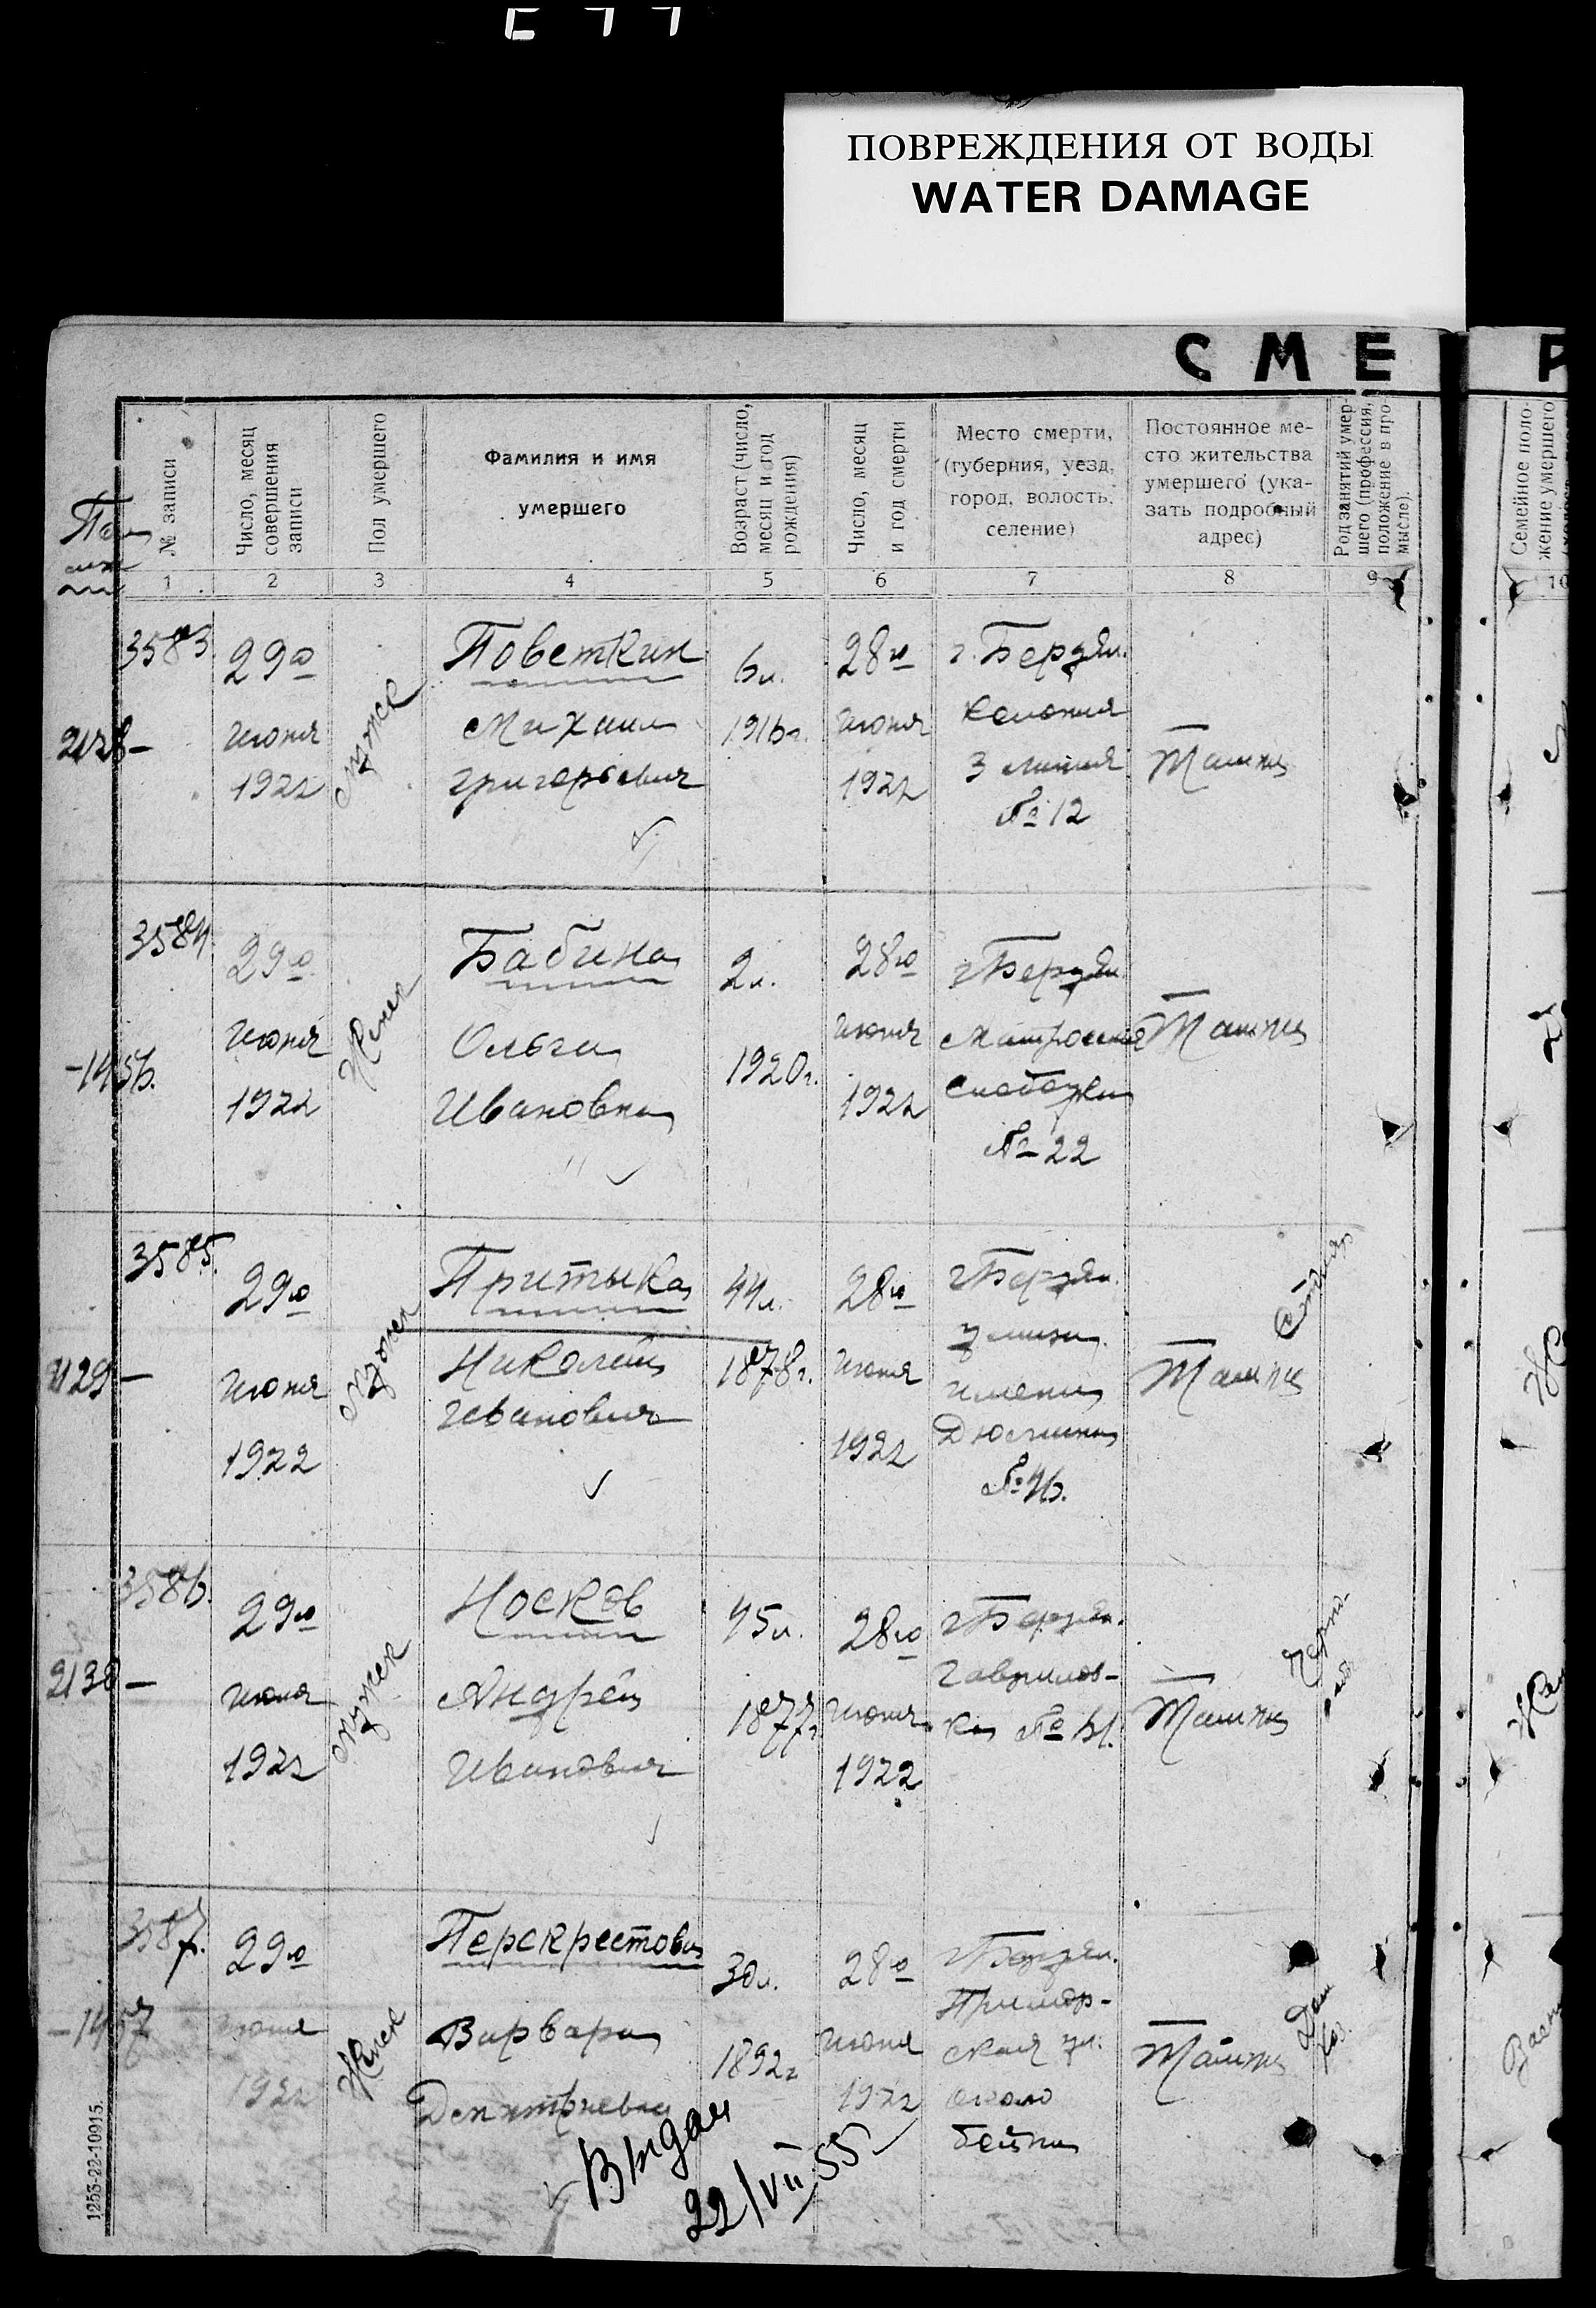 ПОВРЕЖДЕНИЯ ОТ ВОДЫ
WATER DAMAGE
СМЕ
Р
№ записи
Число, месяц
совершения
записи
Пол умершего
Фамилия и имя
умершего
Возраст (число,
месяц и год
рождения)
Число, месяц
и год смерти
Место смерти,
(губерния, уезд,
город, волость,
селение)
Постоянное ме-
сто жительства
умершего (ука-
зать подробный
адрес)
Род занятий умер-
шего (профессия,
положение в про-
мысле).
Семейное поло-
жение умершего
1
2
3
4
5
6
7
8
9
10
3583.
2128 –
29го
июня
1922
Мужск
Поветкин
Михаил
Григорьевич
6 л.
1916 г.
28го
июня
1922
г. Бердян.
Колония
3 линия
№ 12
Там же
3584.
– 1456.
29го
июня
1922
Женск
Бабина
Ольга
Ивановна
2 л.
1920 г.
28го
июня
1922
г. Бердян.
Матросская
Слободка
№ 22
Там же
3585.
2129 –
29го
июня
1922
Мужск
Притыка
Николай
Иванович
44 л.
1878 г.
28го
июня
1922
г. Бердян.
улица
имени
Дюмина
№ 46.
Там же
Столяр
3586.
2130 –
29го
июня
1922
Мужск
Носков
Андрей
Иванович
45 л.
1877 г.
28го
июня
1922
г. Бердян.
Гаврилов-
ка №
Там же
Черно-
раб.
3587.
– 1457
29го
июня
1922
Женск
Перекрестова
Варвара
Дмитриевна
30 л.
1892 г
28го
июня
1922
г. Бердян.
Примор-
ская ул.
около
бойни
Там же
Дом
хоз.
Выдан
22/VII 55
1253-22-10915.